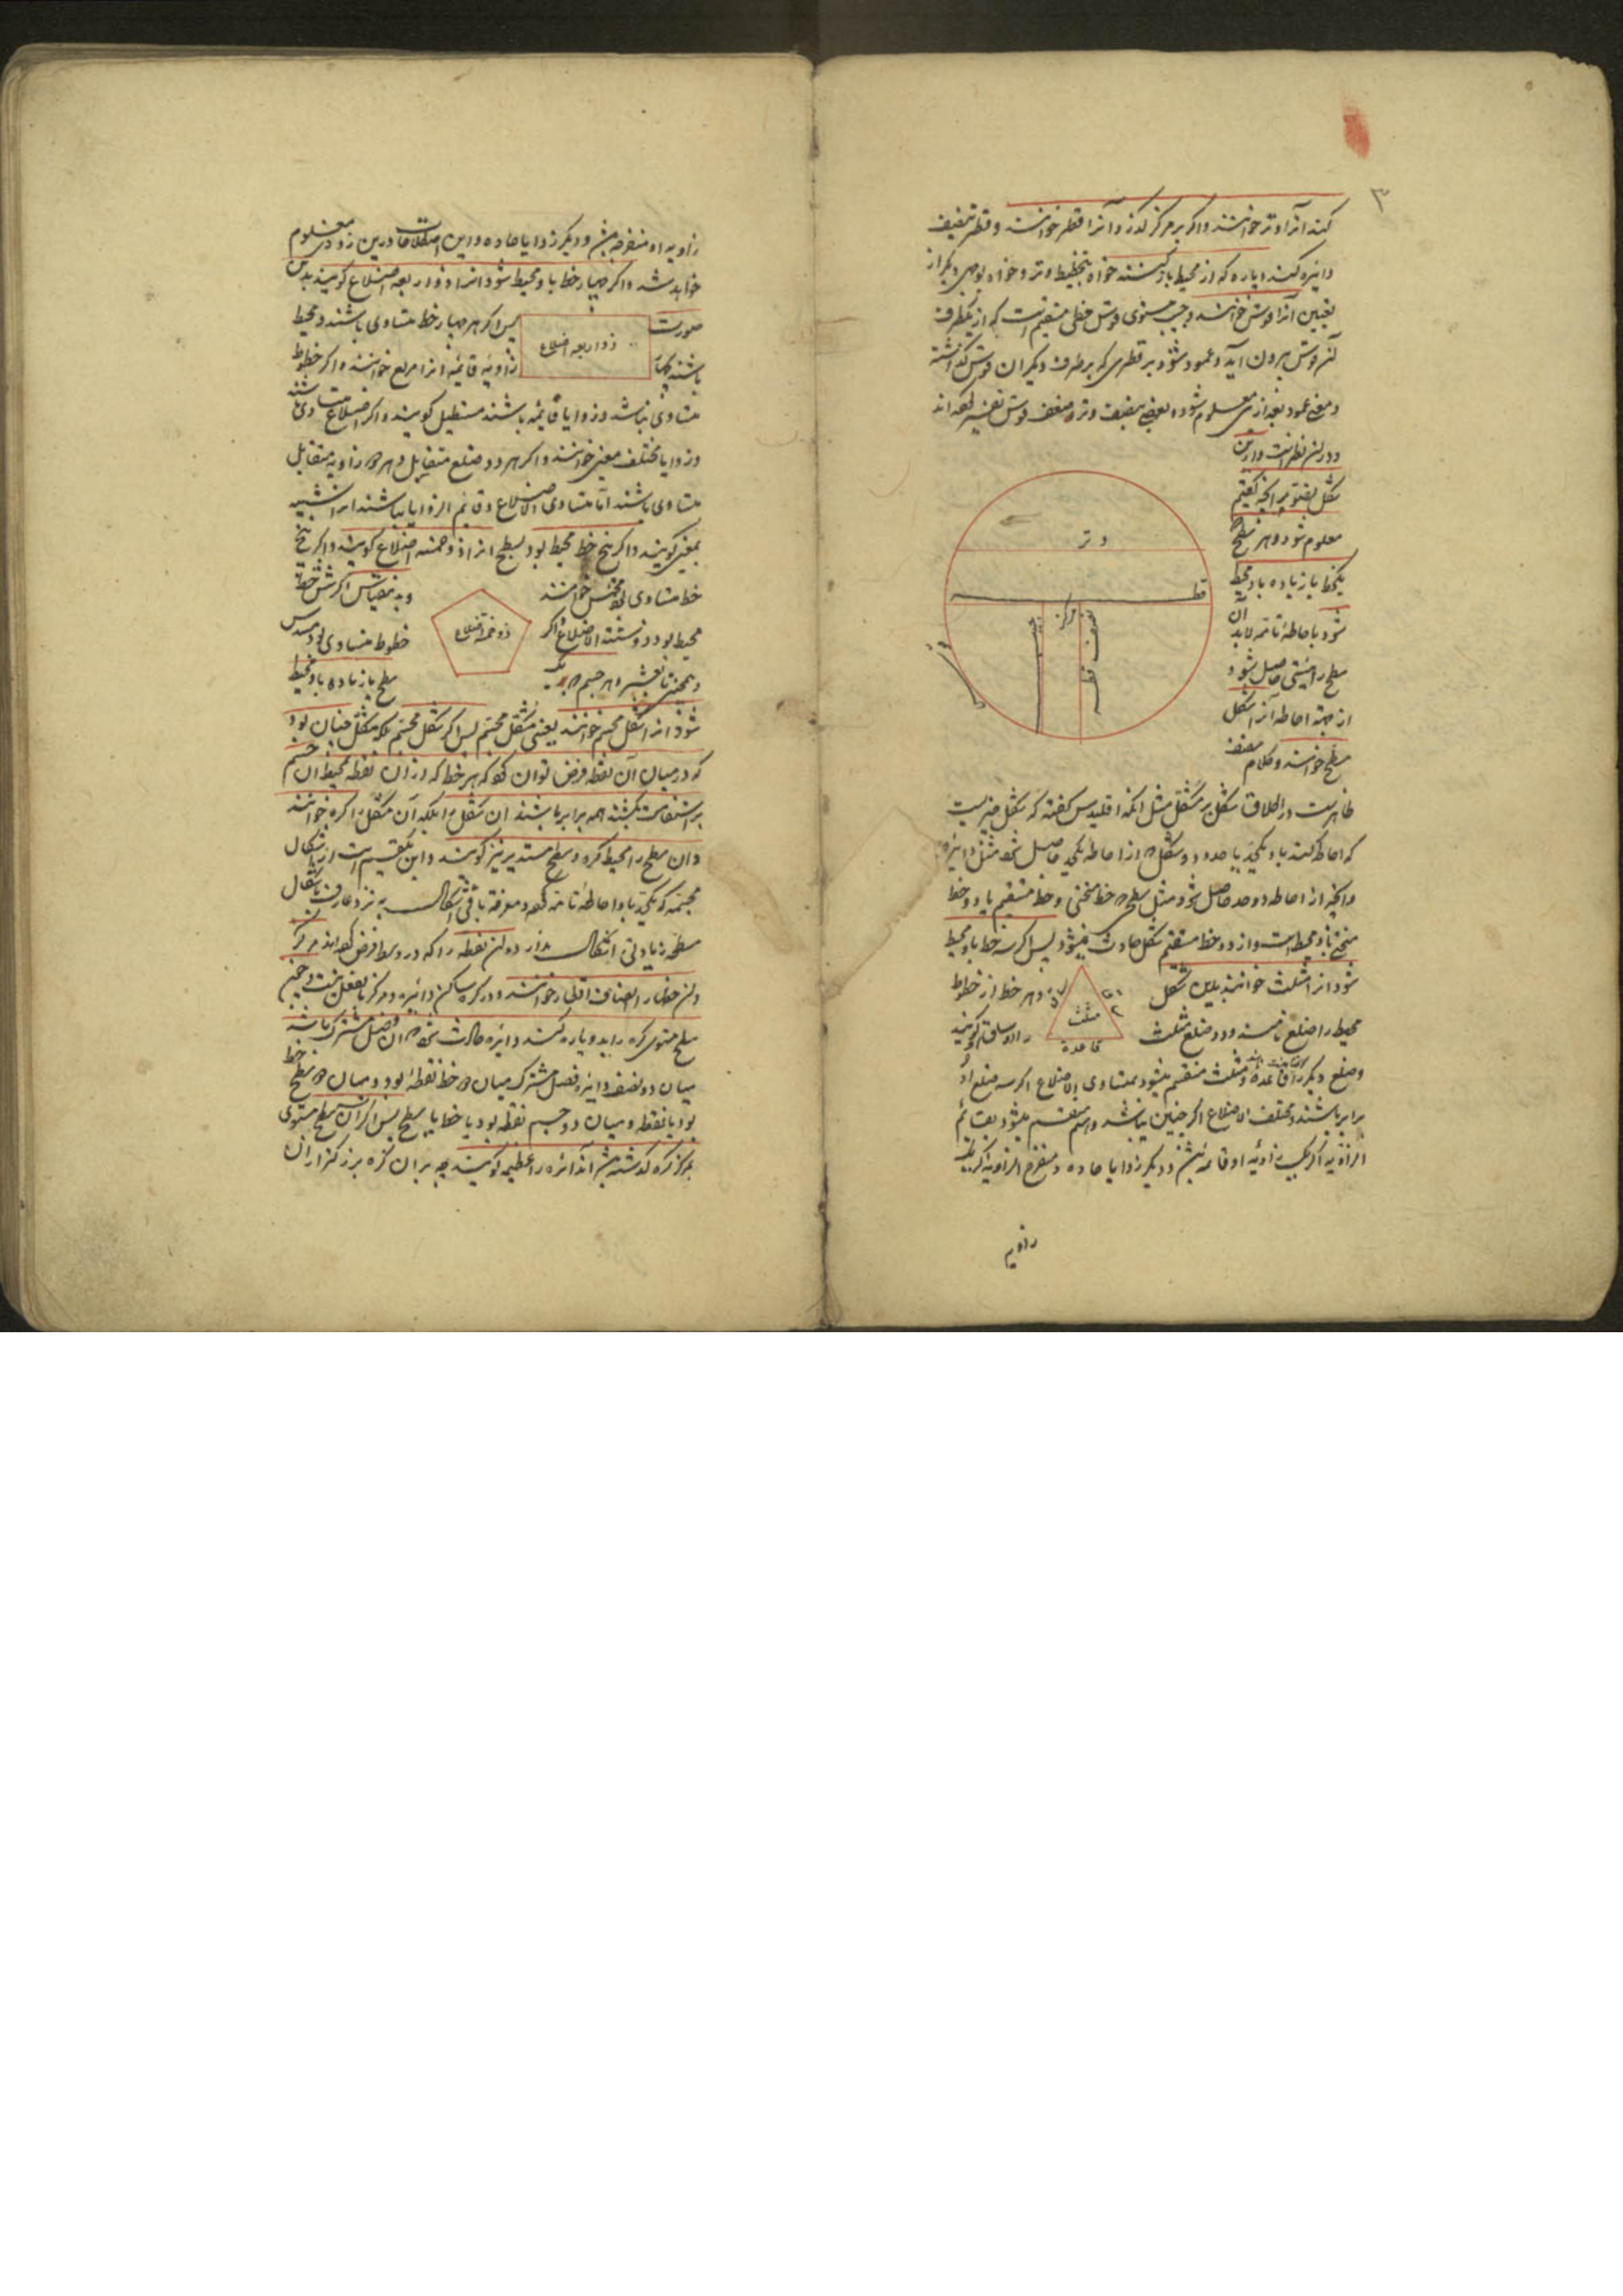 ۳
کند آنرا وتر خوانند و اگر بر مرکز گذرد آنرا قطر خوانند و قطر تنصیف
دایره کند و پاره که از محیط باو کشته خواه بتخطیط وتر و خواه بوجهی دیگر از
تعیین آنرا قوس خوانند و جیب مستوی قوس خطی مستقیم است که از یکطرف
آن قوس بیرون آید و عمود شود بر قطری که بر طرف دیگر آن قوس گذشته
و معنی عمود بعد ازین معلوم شود و بعضی بنصف وتر ضعف قوس تفسیر کرده اند
و درین نظر است و ازین
شکل تصویر آنچه گفتیم
معلوم شود و هر سطح
یکخط یا زیاده باو محیط
شود باحاطۀ تامه لابد آن
سطح را هیئتی حاصل شود
از جهة احاطه آنرا شکل
سطح خوانند و کلام مصنف
وتر
قطر
مرکز
جیب
نصف قطر
قوس
ظاهرست در اطلاق شکل بر مشکل مثل آنکه اقلیدس گفته که شکل چیزیست
که احاطه کند باو یکحد یا حدود و شکل که از احاطه یکحد حاصل شود مثل دایره
و آنچه از احاطه دو حد حاصل شود مثل سطحی که خط منحنی و خط مستقیم یا دو خط
منحنی باو محیط است و از دو خط مستقیم شکل حادث نمیشود پس اگر سه خط باو محیط
شود آنرا مثلث خوانند بدین شکل
و هر خط از خطوط
مثلث
قاعدة
محیط را ضلع نامند و دو ضلع مثلث
را دو ساق گویند
و ضلع دیگر را قاعده و مثلث منقسم میشود بمتساوی الاضلاع اگر سه ضلع او
برابر باشند و مختلف الاضلاع اگر چنین نباشد و هم منقسم میشود بقائم
الزاویه اگر یک زاویۀ او قائمه باشد و دیگر زوایا حاده و منفرج الزاویه اگر یک
زاویه
زاویه او منفرجه باشد و دیگر زوایا حاده و این اصطلاحات درین زودی معلوم
خواهد شد و اگر چهار خط باو محیط شود آنرا ذو اربعه اضلاع گویند بدین
صورت
ذو اربعه اضلاع
پس اگر هر چهار خط متساوی باشند و محیط
باشند
زاویه قائمه آنرا مربع خوانند و اگر خطوط
متساوی نباشد و زوایا قائمه باشند مستطیل گویند و اگر اضلاع متساوی باشند
و زوایا مختلف معین خوانند و اگر هر دو ضلع متقابل و هر دو زاویه متقابل
متساوی باشند اما متساوی الاضلاع و قائم الزوایا نباشند آنرا شبیه
بمعین گویند و اگر پنج خط محیط بود بسطح آنرا ذو خمسه اضلاع گویند و اگر پنج
خط متساوی بود مخمس خوانند
ذو خمسه اضلاع
و بدینقیاس اگر شش خط
محیط بود ذو ستة الاضلاع و اگر
خطوط متساوی بود مسدس
و همچنین تا بعشره و هر جسم که یک
سطح یا زیاده باو محیط
شود آنرا شکل مجسم خوانند یعنی مشکل مجسم پس اگر شکل مجسم بلکه مشکل چنان بود
که در میان آن نقطه فرض توان کرد که هر خط که از آن نقطه بمحیط آن جسم
بر استقامت کشند همه برابر باشند آن شکل را بلکه آن مشکل را کره خوانند
و آن سطح را محیط کره و سطح مستدیر نیز گویند و این یکقسم است از اشکال
مجسمه که یکحد باو احاطۀ تامه کرده و معرفة باقی اشکال بر نزد عارف باشکال
سطحه زیادتی اشکال ندارد و آن نقطه را که در وسط فرض کرده اند مرکز
و آن خطها را انصاف اقطار خوانند و در کره ساکن دایره و مرکز بالفعل نیست و چون
سطح مستوی کره را بدو پاره کند دایره حادث شود که آن فصل مشترک باشد
میان دو نصف و این فصل مشترک میان دو خط نقطه بود و میان دو سطح خط
بود یا نقطه و میان دو جسم نقطه بود یا خط یا سطح پس اگر آن سطح مستوی
بمرکز کره گذشته باشد آن دائره را عظیمه گویند چه بر آن کره بزرگتر از آن